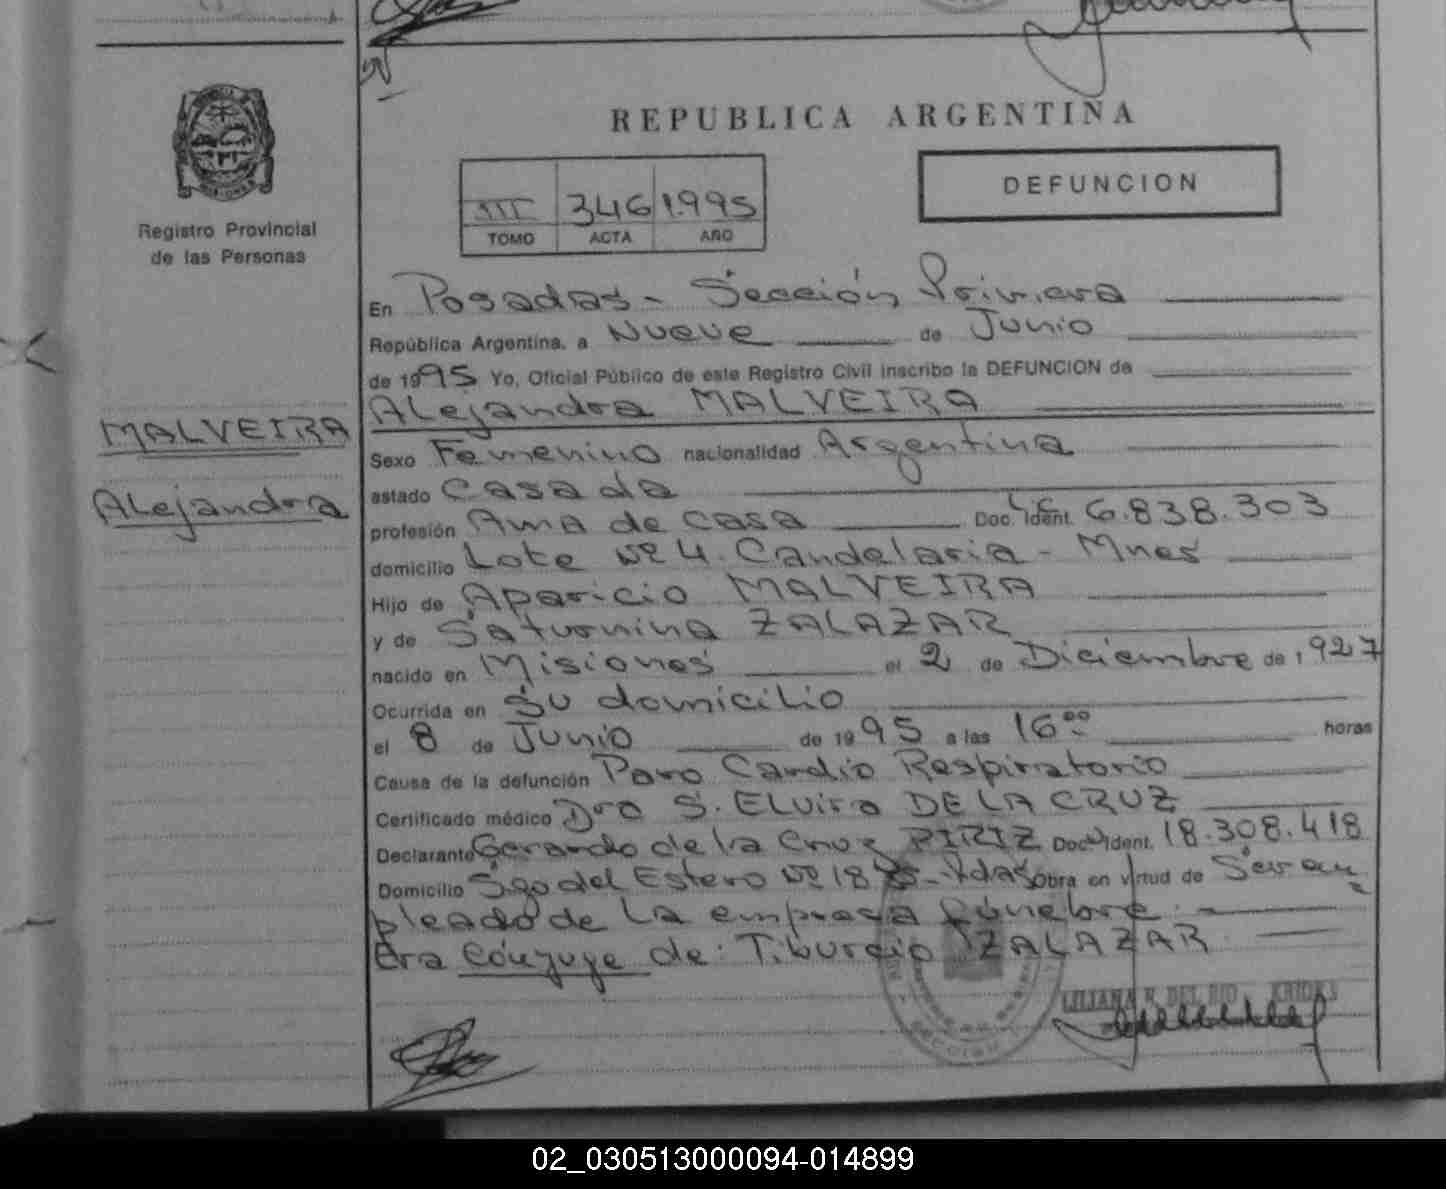 REPUBLICA ARGENTINA
Registro Provincial
de las Personas
III 346 1.995
TOMO ACTA AÑO
DEFUNCION
En Posadas - Sección Primera
República Argentina, a Nueve de Junio
de 1995 Yo, Oficial Público de este Registro Civil inscribo la DEFUNCION de
Alejandra MALVEIRA
MALVEIRA
Alejandra
Sexo Femenino nacionalidad Argentina
estado Casada
profesión Ama de casa Doc. Ident. L.C 6.838.303
domicilio Lote Nº 4. Candelaria - Mnes
Hijo de Aparicio MALVEIRA
y de Saturnina ZALAZAR
nacido en Misiones el 2 de Diciembre de 1927
Ocurrida en Su domicilio
el 8 de Junio de 1995 a las 16.00 horas
Causa de la defunción Paro Cardio Respiratorio
Certificado médico Dra S. Elvira DE LA CRUZ
Declarante Gerardo de la Cruz PIRIZ Doc. Ident. 18.308.418
Domicilio Sgo del Estero Nº 18 - Pdas Obra en virtud de Ser em
pleado de La empresa fúnebre.
Era Cónyuge de: Tiburcio ZALAZAR
LILIANA DEL RIO
02_030513000094-014899